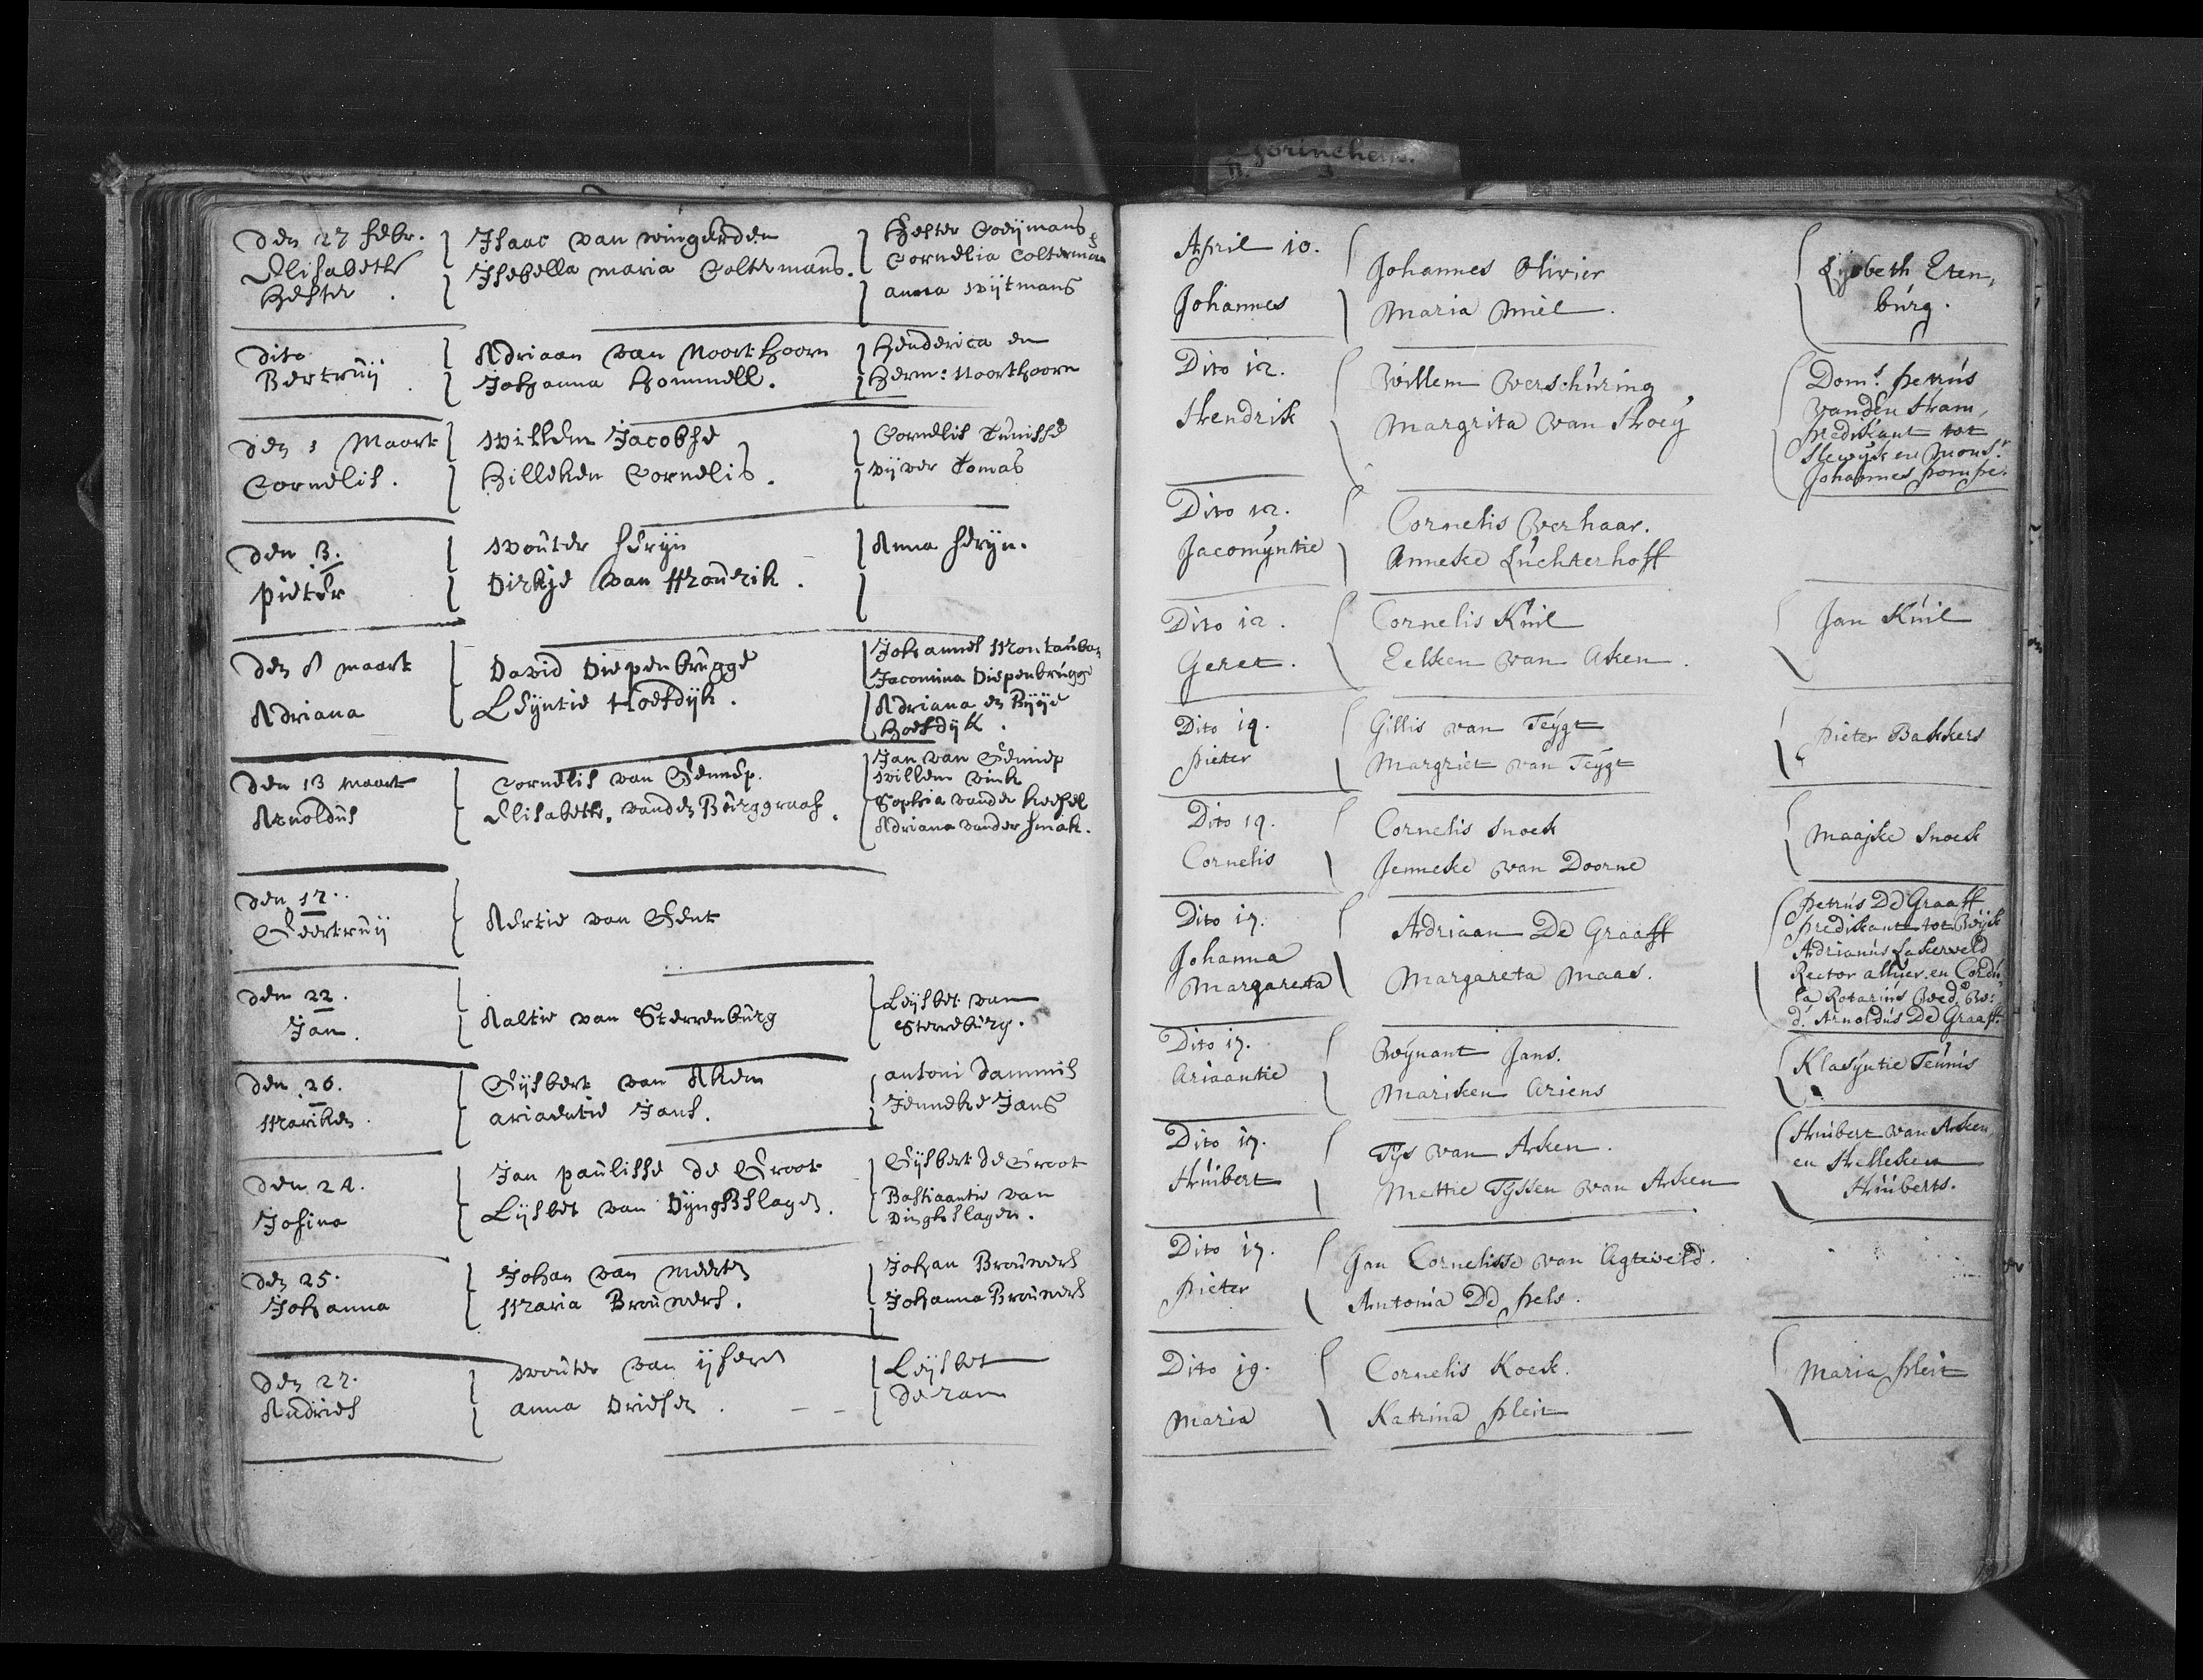 Gorinchem.
3
den 27 febr.
Elisabeth
Hester
Isaac van wingerden
Isebella maria Coltermans.
Hester Coeijmans
Cornelia Colterman
anna wijtmans
dito
Bertruij
Adriaan van Noorthoorn
Johanna Hommell.
Henderica en
Herm: Noorthoorn
den 1 Maart
Cornelis.
willem Jacobse
Hilleken Cornelis.
Cornelis Tunisse
wijver Tomas
den 3.
pieter
wouter serijn
Dirkje van Mourik.
Anna serijn.
den 8 maart
Adriana
David Diepenbrugge
Leijntie Hoefdijk.
Johannes Montauban
Jacomina Diepenbrugge
Adriana en
Hoefdijk.
den 13 maart
Arnoldus
Cornelis van Gennep.
Elisabeth. vanden Burggraaf.
Jan van Genniep
willem vink
Sophia vander
Adriana vander smak.
den 17.
Geertruij
Aertie van Gent
den 22.
Jan.
Aaltie van Sterrenburg
Leijsbet van
Sterreburg.
den 26.
Mariken.
Gijsbert van Aken
ariaentie Jans.
antoni Dammis
Jenneke Jans
den 24.
Josina
Jan paulisse de Groot
Lijsbet van Dijnghslagen.
Gijsbert de Groot
Bastiaantie van
Dinghslagen.
den 25.
Johanna
Johan van meerten
Maria Brouwers.
Johan Brouwers
Johanna Brouwers
den 27.
Andries
wouter van ijseren
anna Driesen.
Leijsbet
de ram
April 10.
Johannes
Johannes Olivier
Maria Miel.
Lijsbeth Eren,
burg.
Dito 12.
Hendrik
Willem Verschuring
Margrita van Hoeij
Dom.s petrus
vanden Ham,
predikant tot
Slewijk en Mons.r
Johannes pompe.
Dito 12.
Jacomyntie
Cornelis Verhaar.
Anneke Luchterhoff
Dito 12.
Geret.
Cornelis Kuil
Eelken van Aken.
Jan Kuil
Dito 14.
pieter
Gillis van Teygt
Margriet van Teygt
pieter Bakkers
Dito 14.
Cornelis
Cornelis Snoek
Jenneke van Doorne
Maajke Snoek
Dito 17.
Johanna
Margareta
Adriaan De Graaff
Margareta Maas.
petrus De Graaff
predikant tot Wijck
Adrianus Lakerveld
Rector alhier. en Cordu
la Rotarius Wed.e
d. Arnoldus De Graaff.
Dito 17.
Ariaantie
Wynant Jans.
Mariken Ariens
Klasyntie Teunis
Dito 17.
Huibert
Tys van Arken.
Mettie Tyssen van Arken
Huibert van Arken,
en Helleken
Huiberts.
Dito 17.
pieter
Jan Cornelisse van Agteveld.
Antonia De pels.
Dito 19.
Maria
Cornelis Koek.
Katrina pleit
Maria pleit